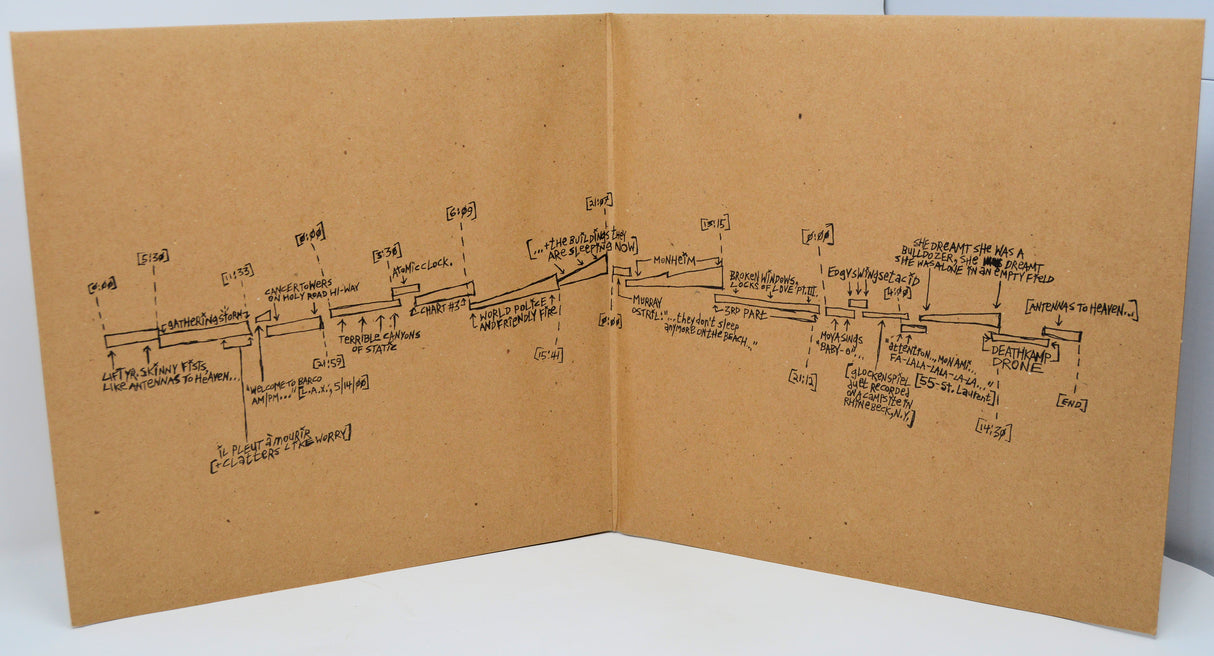 [0:00]
[5:30]
[11:33]
[0:00]
[3:30]
[6:09]
[21:07]
LIFT YR. SKINNY FISTS,
LIKE ANTENNAS TO HEAVEN...
GATHERING STORM
IL PLEUT À MOURIR
[+CLATTERS LIKE WORRY]
"WELCOME TO BARCO
AM/PM..." [L.A.X.; 5/14/00]
CANCER TOWERS
ON HOLY ROAD HI-WAY
[21:59]
TERRIBLE CANYONS
OF STATIC
ATOMIC CLOCK.
CHART #3
WORLD POLICE
AND FRIENDLY FIRE
[15:41]
[...+THE BUILDINGS THEY
ARE SLEEPING NOW]
[0:00]
MURRAY
OSTRIL: "...they don't sleep
anymore on the beach..."
MONHEIM
[13:15]
BROKEN WINDOWS,
LOCKS OF LOVE PT. III.
3RD PART
[21:12]
[0:00]
MOYA SINGS
"BABY-O"...
Edgyswingsetacid
[glockenspiel
duet recorded
on a campsite in
RHINEBECK, N.Y.]
[4:00]
"attention...mon ami...
FA-LALA-LALA-LA-LA..."
[55-St. Laurent]
SHE DREAMT SHE WAS A
BULLDOZER, SHE DREAMT
SHE WAS ALONE IN AN EMPTY FIELD
[14:30]
DEATHKAMP
DRONE
[ANTENNAS TO HEAVEN...]
[END]